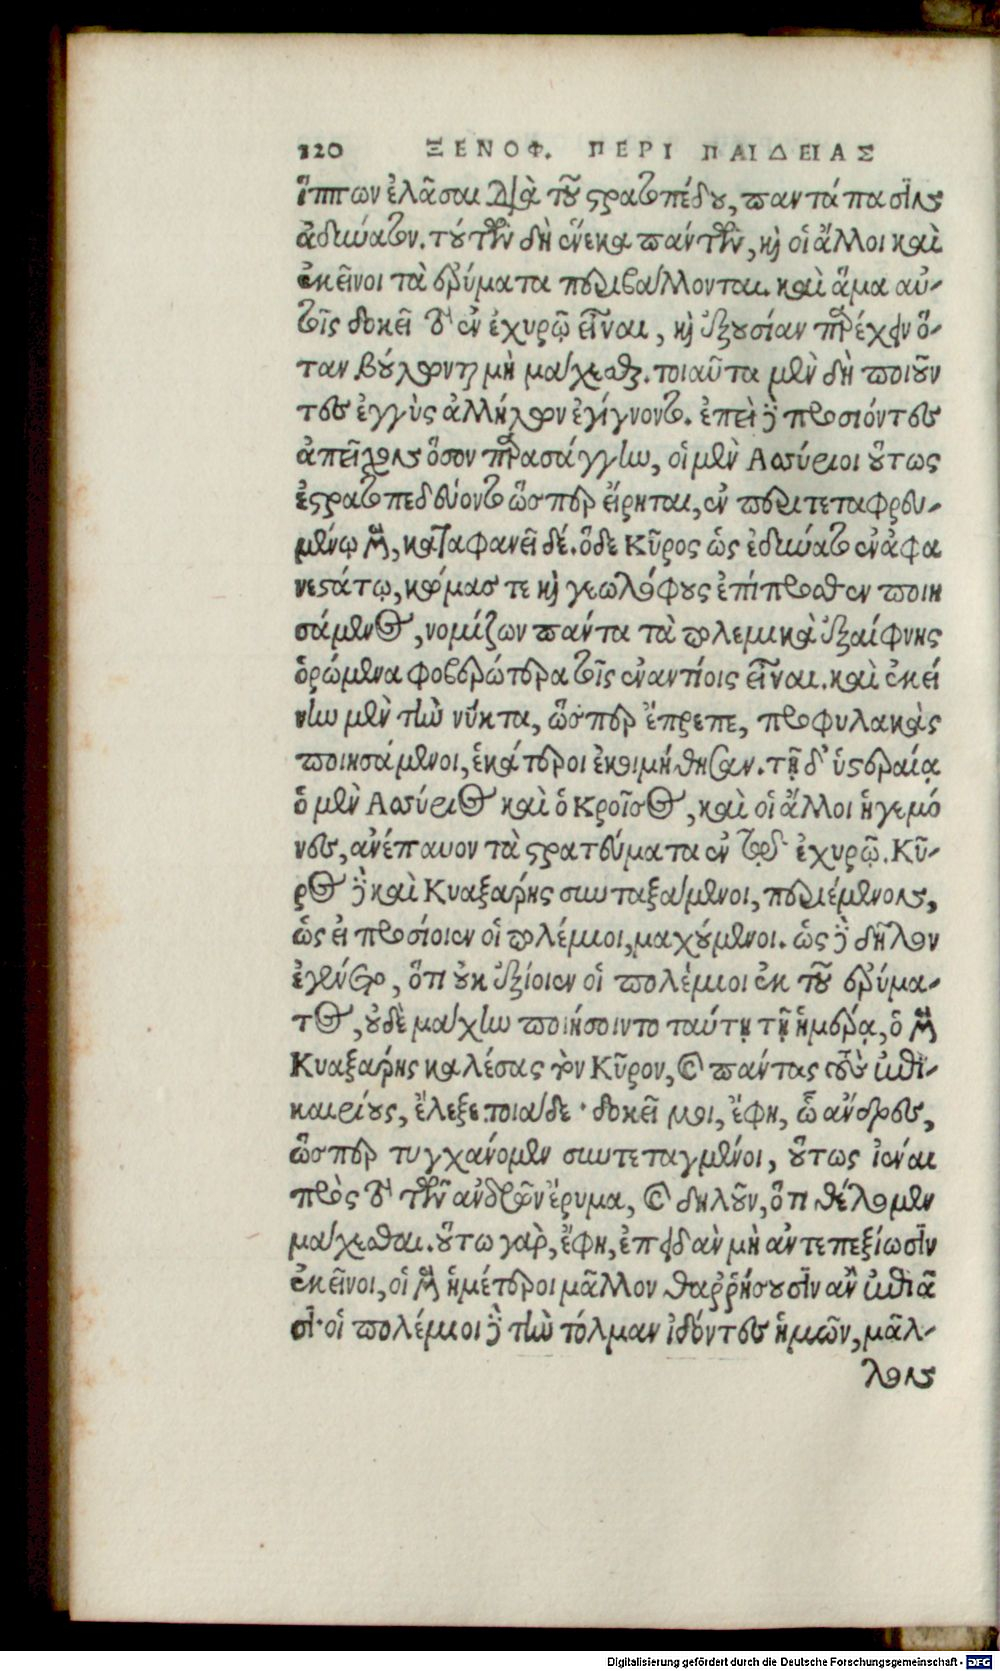 120 ΞΕΝΟΦ. ΠΕΡΙ ΠΑΙΔΕΙΑΣ
ἵππων ἐλᾶσαι διὰ τοῦ στρατοπέδου, παντάπασιν
ἀδύνατον. τούτων δὴ ἕνεκα πάντων, καὶ οἱ ἄλλοι καὶ
ἐκεῖνοι τὰ ἐρύματα περιβάλλονται. καὶ ἅμα αὐ-
τοῖς δοκεῖ τὸ ἐν ἐχυρῷ εἶναι, καὶ ἐξουσίαν παρέχειν ὅ-
ταν βούλωνται μὴ μάχεσθαι. τοιαῦτα μὲν δὴ ποιοῦν
τες ἐγγὺς ἀλλήλων ἐγίγνοντο. ἐπεὶ δὲ προσιόντες
ἀπεῖχον ὅσον παρασάγγην, οἱ μὲν Ασσύριοι οὕτως
ἐστρατοπεδεύοντο ὥσπερ εἴρηται, ἐν περιτεταφρευ-
μένῳ μὲν, καταφανεῖ δέ. ὅδε Κῦρος ὡς ἐδύνατο ἐν ἀφα
νεστάτῳ, κώμας τε καὶ γεωλόφους ἐπίπροσθεν ποιη
σάμενος, νομίζων πάντα τὰ πολεμικὰ ἐξαίφνης
ὁρώμενα φοβερώτερα τοῖς ἐναντίοις εἶναι. καὶ ἐκεί
νην μὲν τὴν νύκτα, ὥσπερ ἔπρεπε, προφυλακὰς
ποιησάμενοι, ἑκάτεροι ἐκοιμήθησαν. τῇ δ' ὑστεραίᾳ
ὁ μὲν Ασσύριος καὶ ὁ Κροῖσος, καὶ οἱ ἄλλοι ἡγεμό
νες, ἀνέπαυον τὰ στρατεύματα ἐν τῷ ἐχυρῷ. Κῦ-
ρος δὲ καὶ Κυαξάρης συνταξάμενοι, περιέμενον,
ὡς εἰ προσίοιεν οἱ πολέμιοι, μαχούμενοι. ὡς δὲ δῆλον
ἐγένετο, ὅτι οὐκ ἐξίοιεν οἱ πολέμιοι ἐκ τοῦ ἐρύμα-
τος, οὐδὲ μάχην ποιήσοιντο ταύτῃ τῇ ἡμέρᾳ, ὁ μὲν
Κυαξάρης καλέσας τὸν Κῦρον, καὶ πάντας τοὺς ἐπι-
καιρίους, ἔλεξε τοιάδε· δοκεῖ μοι, ἔφη, ὦ ἄνδρες,
ὥσπερ τυγχάνομεν συντεταγμένοι, οὕτως ἰέναι
πρὸς τὸ τῶν ἀνδρῶν ἔρυμα, καὶ δηλοῦν, ὅτι θέλομεν
μάχεσθαι. οὕτω γὰρ, ἔφη, ἐπειδὰν μὴ ἀντεπεξίωσιν
ἐκεῖνοι, οἱ μὲν ἡμέτεροι μᾶλλον θαῤῥήσουσιν ἂν ἐπιᾶ
σι· οἱ πολέμιοι δὲ τὴν τόλμαν ἰδόντες ἡμῶν, μᾶλ-
λον
Digitalisierung gefördert durch die Deutsche Forschungsgemeinschaft - DFG